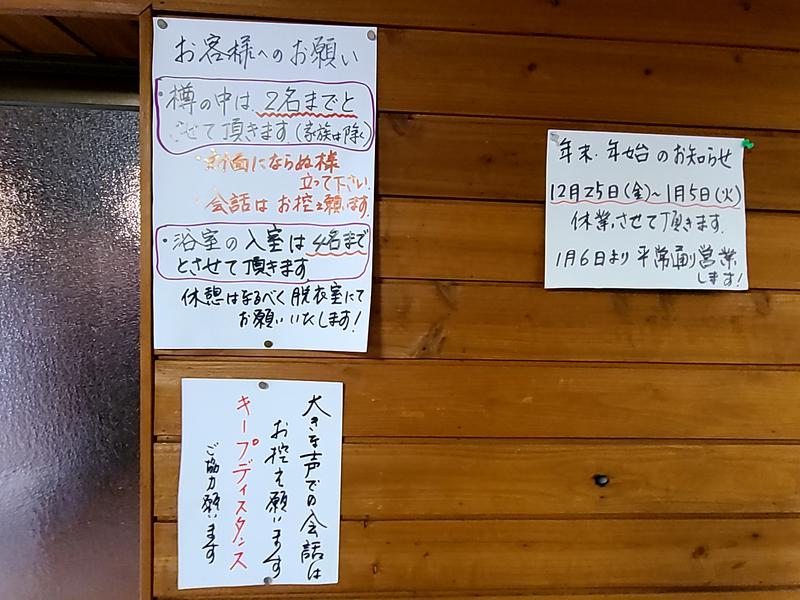 お客様へのお願い
・樽の中は、2名までと
させて頂きます。(家族は除く)
・対面にならぬ様
立って下さい。
・会話はお控え願います。
・浴室の入室は4名まで
とさせて頂きます
休憩はなるべく脱衣室にて
お願いいたします!
大きな声での会話は
お控え願います
キープディスタンス
ご協力願います
年末・年始のお知らせ
12月25日(金)~1月5日(火)
休業させて頂きます。
1月6日より平常通り営業
します!